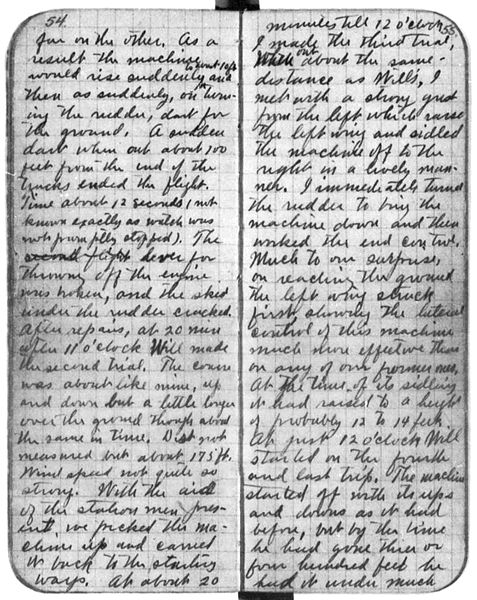 54
far on the other. As a
result the machine
to about 10 ft
would rise suddenly and
then as suddenly, on turn-
ing the rudder, dart for
the ground. A sudden
dart when out about 100
feet from the end of the
tracks ended the flight.
Time about 12 seconds (not
known exactly as watch was
not promptly stopped). The
second flight lever for
throwing off the engine
was broken, and the skid
under the rudder cracked.
After repairs, at 20 min
after 11 o'clock Will made
the second trial. The course
was about like mine, up
and down but a little longer
over the ground though about
the same in time. Dist not
measured but about 175 ft.
Wind speed not quite so
strong. With the aid
of the station men pres-
ent, we picked the ma-
chine up and carried
it back to the starting
ways. At about 20
55
minutes till 12 o'clock
I made the third trial,
When out about the same
distance as Will's, I
met with a strong gust
from the left which raised
the left wing and sidled
the machine off to the
right in a lively man-
ner. I immediately turned
the rudder to bring the
machine down and then
worked the end control.
Much to our surprise,
on reaching the ground
the left wing struck
first, showing the lateral
control of this machine
much more effective than
on any of our former ones.
At the time of its sidling
it had raised to a height
of probably 12 to 14 feet.
At just 12 o'clock Will
started on the fourth
and last trip. The machine
started off with its ups
and downs as it had
before, but by the time
he had gone three or
four hundred feet he
had it under much